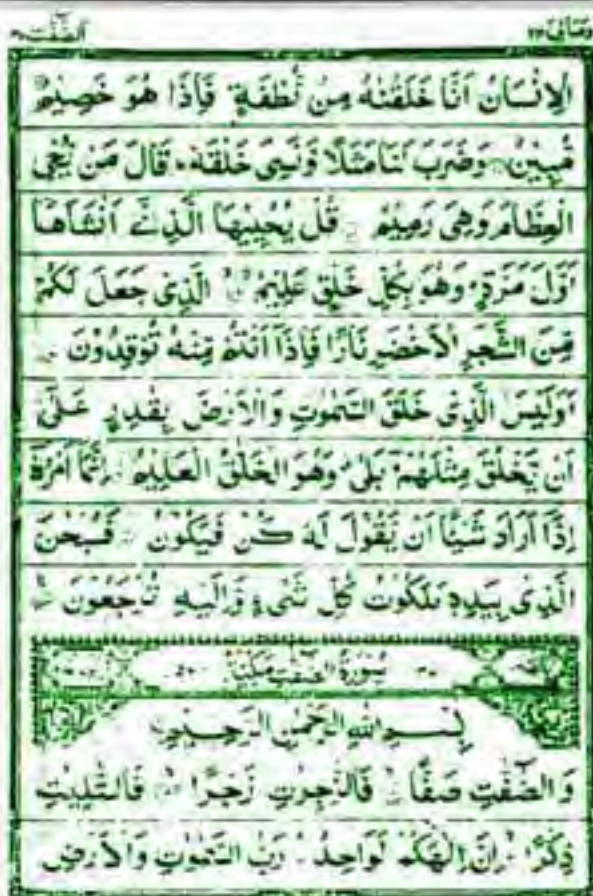 الصّٰٓفّٰت ٣٧
ومالی ٢٣
الْاِنْسَانُ اَنَّا خَلَقْنٰهُ مِنْ نُّطْفَةٍ فَاِذَا هُوَ خَصِيْمٌ
مُّبِيْنٌ وَضَرَبَ لَنَا مَثَلًا وَّنَسِىَ خَلْقَهٗ قَالَ مَنْ يُّحْىِ
الْعِظَامَ وَهِىَ رَمِيْمٌ قُلْ يُحْيِيْهَا الَّذِىْٓ اَنْشَاَهَآ
اَوَّلَ مَرَّةٍ وَهُوَ بِكُلِّ خَلْقٍ عَلِيْمٌ الَّذِىْ جَعَلَ لَكُمْ
مِّنَ الشَّجَرِ الْاَخْضَرِ نَارًا فَاِذَآ اَنْتُمْ مِّنْهُ تُوْقِدُوْنَ
اَوَلَيْسَ الَّذِىْ خَلَقَ السَّمٰوٰتِ وَالْاَرْضَ بِقٰدِرٍ عَلٰٓى
اَنْ يَّخْلُقَ مِثْلَهُمْ بَلٰى وَهُوَ الْخَلّٰقُ الْعَلِيْمُ اِنَّمَآ اَمْرُهٗٓ
اِذَآ اَرَادَ شَيْئًا اَنْ يَّقُوْلَ لَهٗ كُنْ فَيَكُوْنُ فَسُبْحٰنَ
الَّذِىْ بِيَدِهٖ مَلَكُوْتُ كُلِّ شَىْءٍ وَّاِلَيْهِ تُرْجَعُوْنَ
سُوْرَةُ الصّٰٓفّٰتِ مَكِّيَّةٌ
بِسْمِ اللهِ الرَّحْمٰنِ الرَّحِيْمِ
وَالصّٰٓفّٰتِ صَفًّا فَالزّٰجِرٰتِ زَجْرًا فَالتّٰلِيٰتِ
ذِكْرًا اِنَّ اِلٰهَكُمْ لَوَاحِدٌ رَبُّ السَّمٰوٰتِ وَالْاَرْضِ